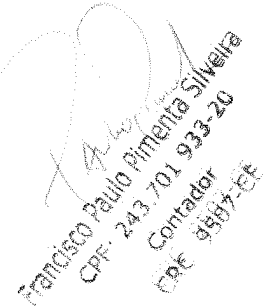 Francisco Paulo Pimenta Silveira
CPF: 243.701.933-20
Contador